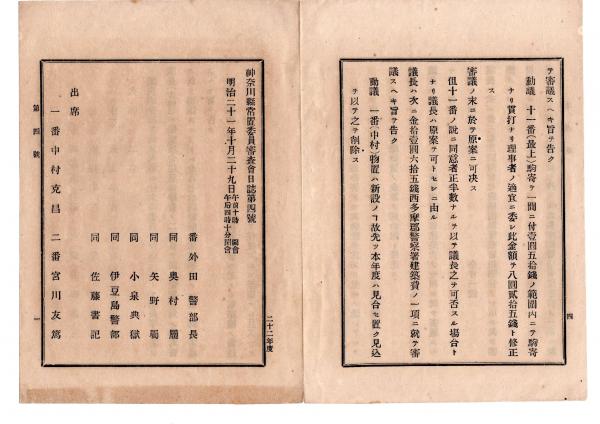 テ審議スヘキ旨ヲ告ク
動議 十一番(最上)駒寄ヲ一間ニ付壹圓五拾錢ノ範圍内ニテ駒寄
ナリ貫打ナリ理事者ノ適宜ニ委シ此金額ヲ八圓貳拾五錢ト修正
ス
審議ノ末ニ於テ原案ニ可决ス
但十一番ノ説ニ同意者正半數ナルヲ以テ議長之テ可否スル塲合ト
ナリ議長ハ原案ヲ可トセシニ由ル
議長ハ次ニ金拾壹圓六拾五錢西多摩郡警察署建築費ノ一項ニ就テ審
議スヘキ旨ヲ告ク
動議 一番(中村)物置ハ新設ノヿ故先ツ本年度ハ見合セ置ク見込
ヲ以テ之ヲ削除ス
四
二十二年度
神奈川縣常置委員審査會日誌第四號
明治二十一年十月二十九日
午前十時 開會
午后四時十分閉會
番外田警部長
同 奥村屬
同 矢野屬
同 小泉典獄
同 伊豆島警部
同 佐藤書記
出席
一番中村克昌 二番宮川友篤
第四號
一